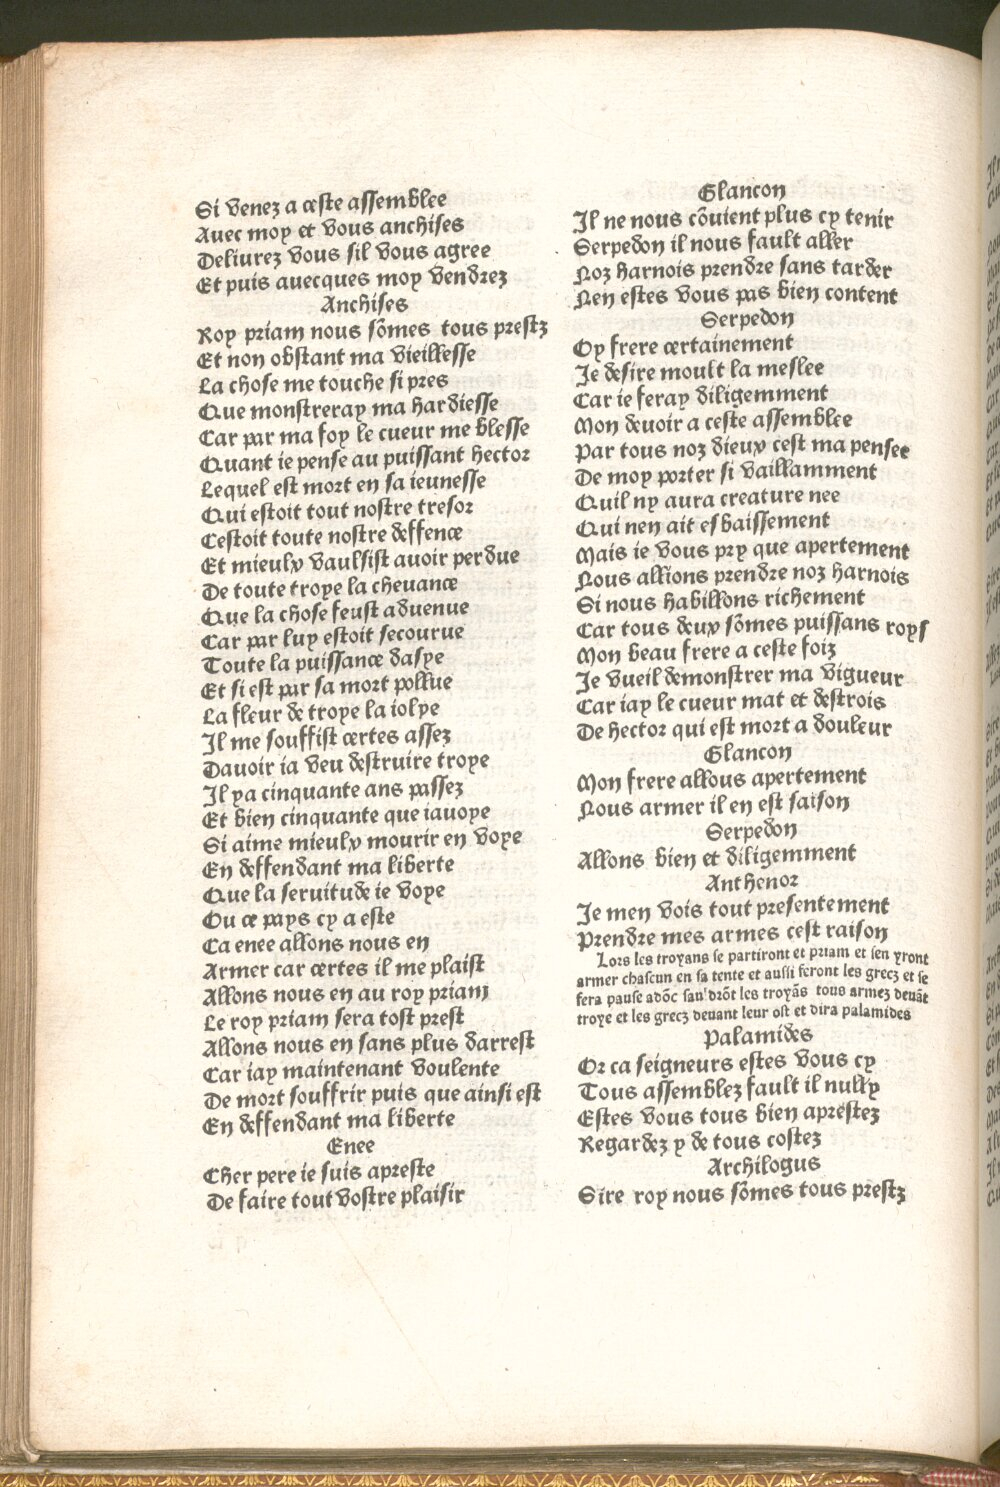 Si venez a ceste assemblee
Auec moy et vous anchises
Deliurez vous sil vous agree
Et puis auecques moy vendrez
Anchises
Roy priam nous sõmes tous prestz
Et non obstant ma vieillesse
La chose me touche si pres
Que monstreray ma hardiesse
Car par ma foy le cueur me blesse
Quant ie pense au puissant hector
Lequel est mort en sa ieunesse
Qui estoit tout nostre tresor
Cestoit toute nostre deffence
Et mieulx vaulsist auoir perdue
De toute troye la cheuance
Que la chose feust aduenue
Car par luy estoit secourue
Toute la puissance dasye
Et si est par sa mort pollue
La fleur de troye la iolye
Il me souffist certes assez
Dauoir ia veu destruire troye
Il ya cinquante ans passez
Et bien cinquante que iauoye
Si aime mieulx mourir en voye
En deffendant ma liberte
Que la seruitude ie voye
Ou ce pays cy a este
Ca enee allons nous en
Armer car certes il me plaist
Allons nous en au roy priam
Le roy priam sera tost prest
Allons nous en sans plus darrest
Car iay maintenant voulente
De mort souffrir puis que ainsi est
En deffendant ma liberte
Enee
Cher pere ie suis apreste
De faire tout vostre plaisir
Glancon
Il ne nous cõuient plus cy tenir
Serpedon il nous fault aller
Noz harnois prendre sans tarder
Nen estes vous pas bien content
Serpedon
Oy frere certainement
Je desire moult la meslee
Car ie feray diligemment
Mon deuoir a ceste assemblee
Par tous noz dieux cest ma pensee
De moy porter si vaillamment
Quil ny aura creature nee
Qui nen ait esbaissement
Mais ie vous pry que apertement
Nous allions prendre noz harnois
Si nous habillons richement
Car tous deux sõmes puissans roys
Mon beau frere a ceste foiz
Je vueil demonstrer ma vigueur
Car iay le cueur mat et destrois
De hector qui est mort a douleur
Glancon
Mon frere allous apertement
Nous armer il en est saison
Serpedon
Allons bien et diligemment
Anthenor
Je men vois tout presentement
Prendre mes armes cest raison
Lors les troyans se partiront et priam et sen yront
armer chascun en sa tente et aussi feront les grecz et se
fera pause adõc sau'drõt les troyãs tous armez deuãt
troye et les grecz deuant leur ost et dira palamides
Palamides
Or ca seigneurs estes vous cy
Tous assemblez fault il nully
Estes vous tous bien aprestez
Regardez y de tous costez
Archilogus
Sire roy nous sõmes tous prestz